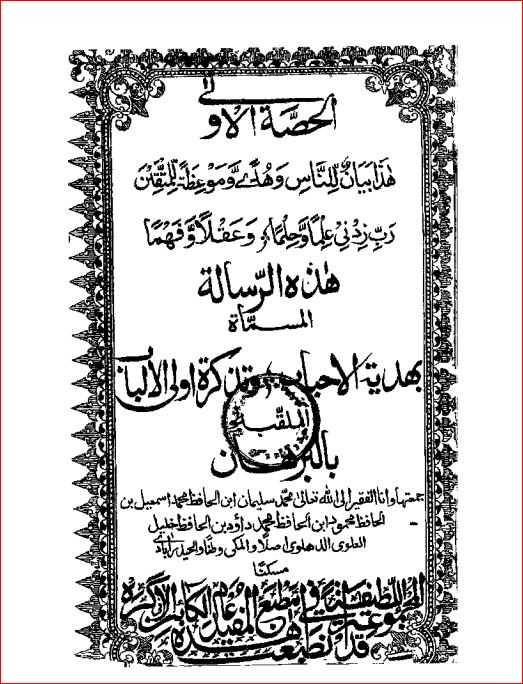 الحصّة الاولى
هٰذَا بَيَانٌ لِّلنَّاسِ وَهُدًى وَّمَوْعِظَةٌ لِّلْمُتَّقِيْنَ
رَبِّ زِدْنِيْ عِلْمًا وَّحِلْمًا وَعَقْلًا وَّفَهْمًا
هٰذه الرّسالة
المسمّاة
بهدية الاحباب وتذكرة اولى الالباب
الملقّبة
بالبرهان
جمعتها وانا الفقير الى الله تعالىٰ محمد سليمان ابن الحافظ محمد اسمعيل بن
الحافظ محمود ابن الحافظ محمد داؤد بن الحافظ خليل
العلوى الدهلوى اصلًا والمكى وطنًا والحيدرابادى
مسكنًا
قد انطبعت هذه المجموعة اللطيفة فى مطبع المفيد عام الكائن